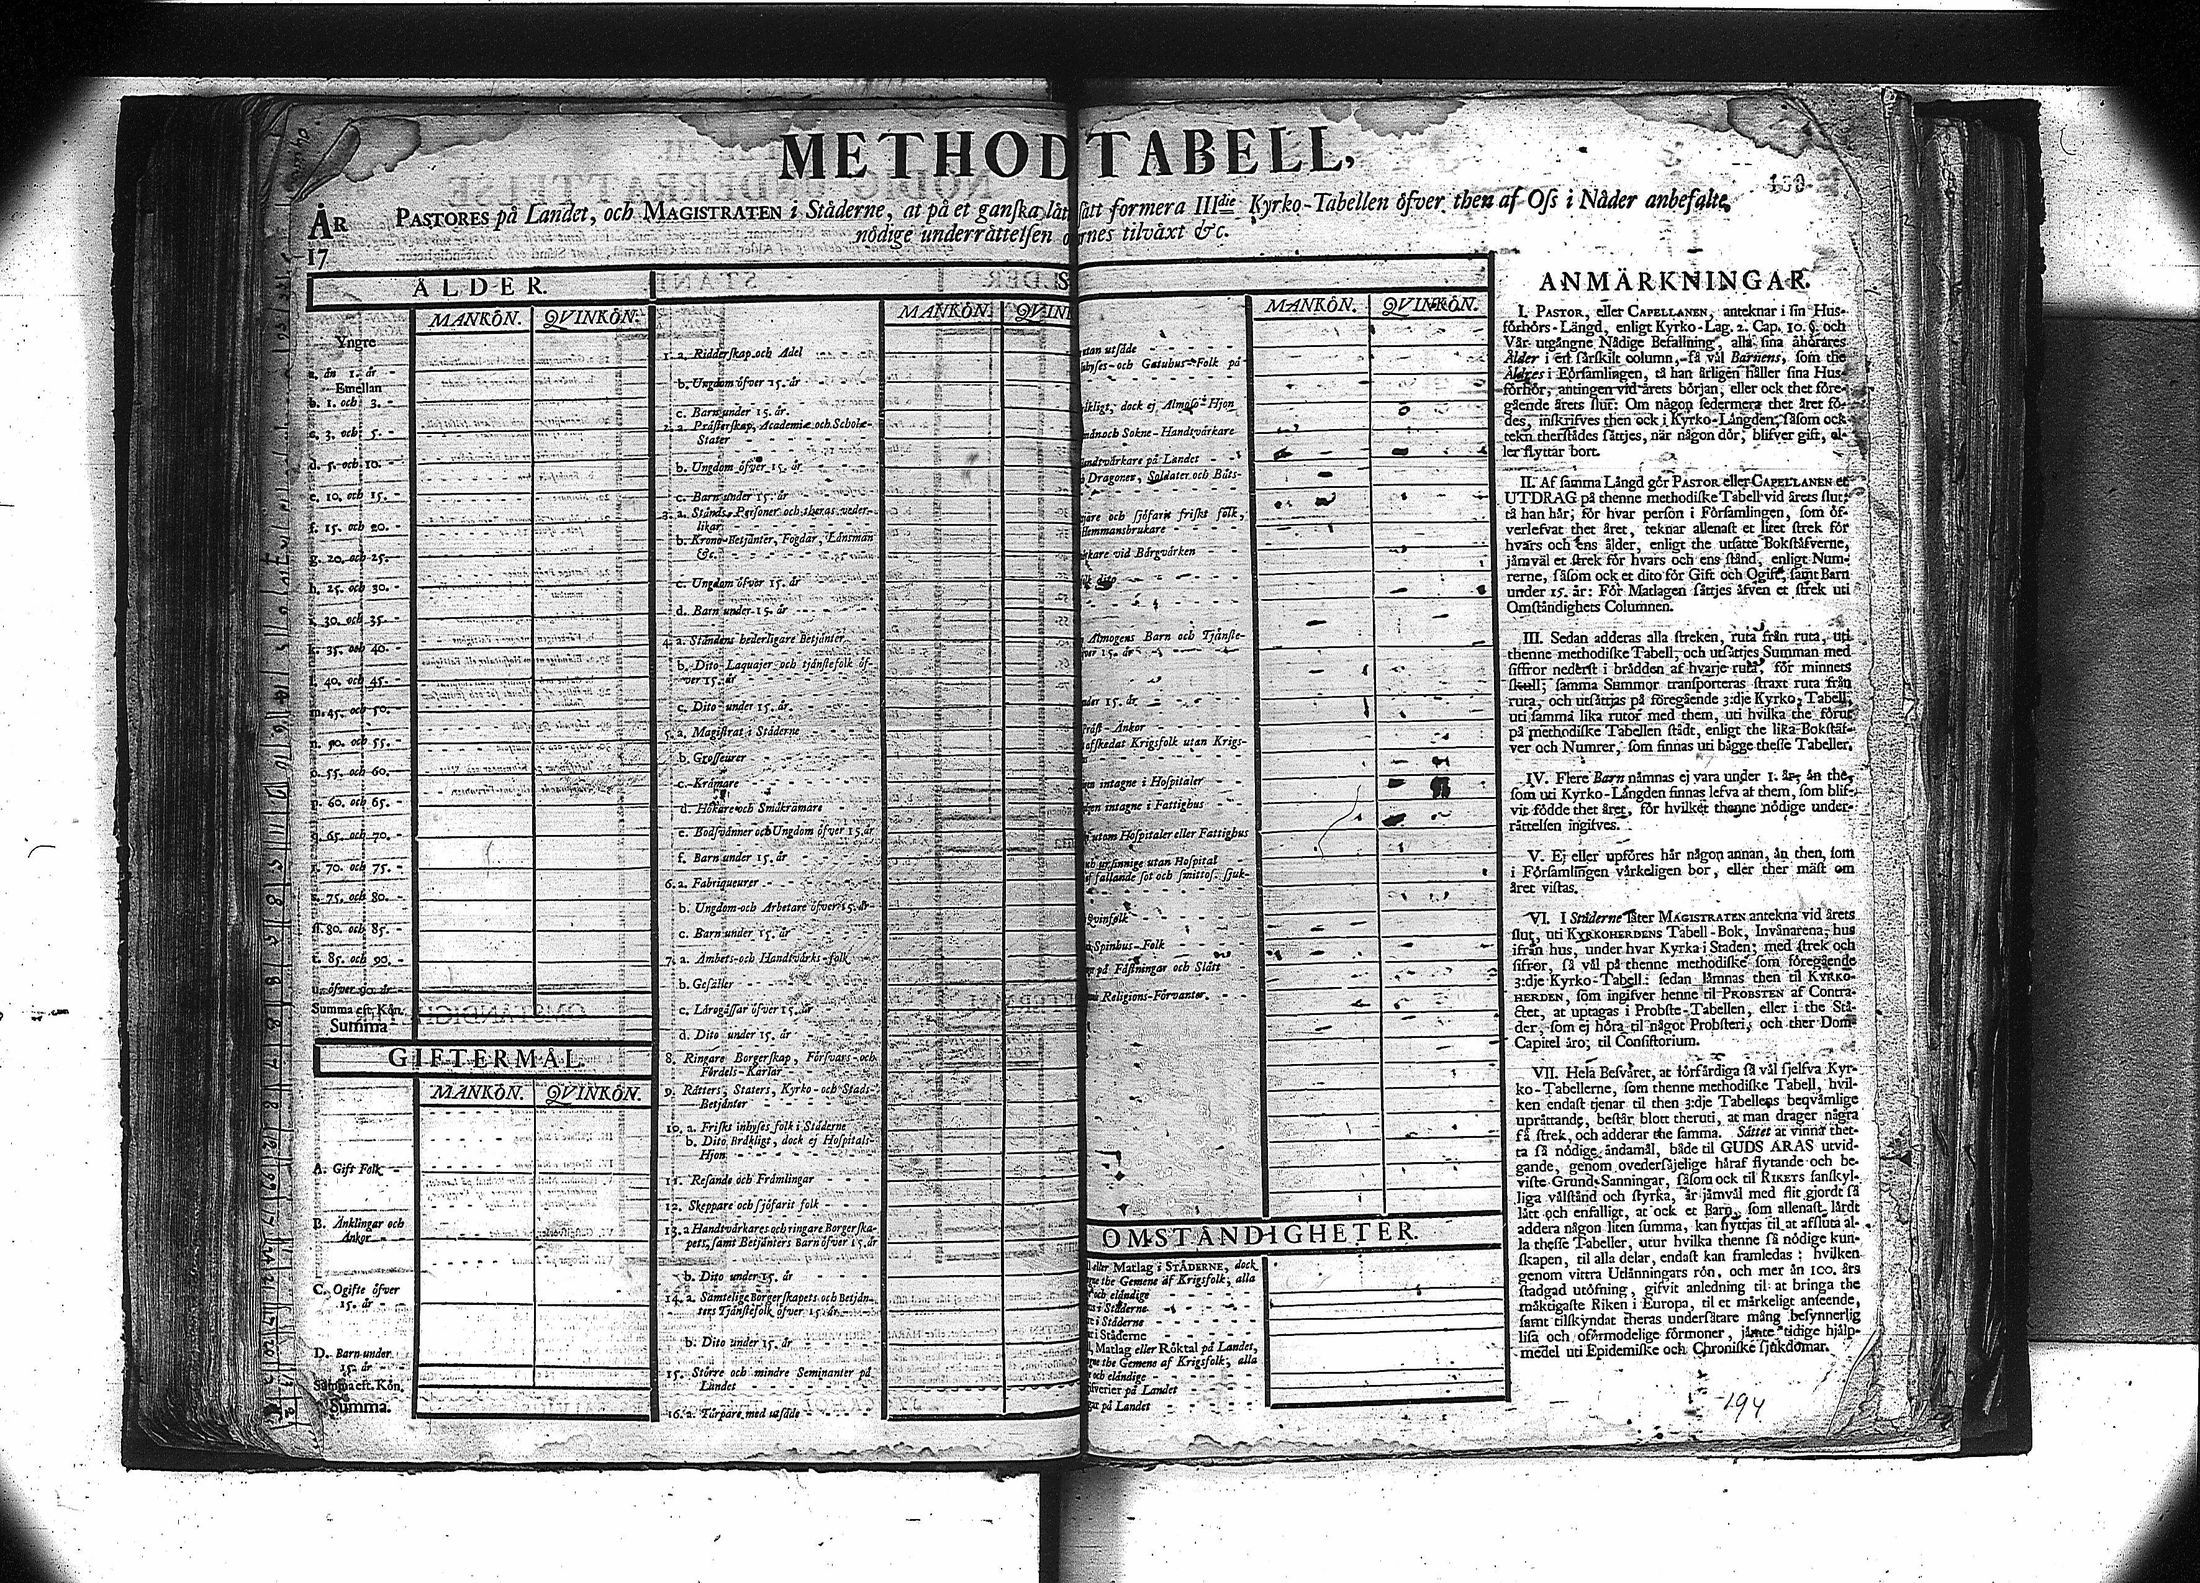 METHODTABELL,
ÅR
17
PASTORES på Landet, och MAGISTRATEN i Ståderne, at på et ganſka låt ſått formera IIIdie Kyrko-Tabellen öfver then af Oſs i Nåder anbefalte,
nödige underråttelſen tilvåxt &c.
ÅLDER.
MANKÖN. QVINKÖN.
Yngre
a. ån 1. år -
Emellan
b. 1. och 3. -
c. 3. och 5. -
d. 5. och 10. -
e. 10. och 15. -
f. 15. och 20. -
g. 20. och 25. -
h. 25. och 30. -
i. 30. och 35. -
k. 35. och 40. -
l. 40. och 45. -
m. 45. och 50. -
n. 50. och 55. -
o. 55. och 60. -
p. 60. och 65. -
q. 65. och 70. -
r. 70. och 75. -
s. 75. och 80. -
ſt. 80. och 85. -
t. 85. och 90. -
u. öfver 90. år -
Summa eft. Kön.
Summa
GIFTERMÅL.
MANKÖN. QVINKÖN.
A. Gift Folk -
B. Änklingar och
Änkor -
C. Ogifte öfver
15. år -
D. Barn under
15. år -
Summa eft. Kön.
Summa.
MANKÖN. QVIN
1. a. Ridderſkap och Adel
b. Ungdom öfver 15. år
c. Barn under 15. år.
2. a. Pråſterſkap, Academiæ och Scholæ-
Stater
b. Ungdom öfver 15. år
c. Barn under 15. år
3. a. Stånds-Perſoner och theras veder-
likar
b. Krono-Betjånter, Fogdar, Lånsmån
&c.
c. Ungdom öfver 15. år
d. Barn under 15. år
4. a. Ståndens hederligare Betjånter
b. Dito Laquajer och tjånſtefolk öf-
ver 15. år
c. Dito under 15. år.
5. a. Magiſtrat i Ståderne
b. Groſſeurer
c. Kråmare
d. Hökare och Småkråmare
e. Bodſvånner och Ungdom öfver 15. år
f. Barn under 15. år
6. a. Fabriqueurer
b. Ungdom och Arbetare öfver 15. år
c. Barn under 15. år.
7. a. Åmbets- och Handtvårks-folk
b. Geſåller
c. Lårogåſſar öfver 15. år
d. Dito under 15. år
8. Ringare Borgerſkap, Förſvars- och
Fördels-Karlar
9. Råtters, Staters, Kyrko- och Stads-
Betjånter
10. a. Friſkt inhyſes folk i Ståderne
b. Dito Bråkligt, dock ej Hoſpitals-
Hjon
11. Reſande och Fråmlingar
12. Skeppare och ſjöfarit folk
13. a. Handtvårkares och ringare Borgerſka-
pets, ſamt Betjånters Barn öfver 15. år
b. Dito under 15. år
14. a. Samtelige Borgerſkapets och Betjån-
ters Tjånſtefolk öfver 15. år
b. Dito under 15. år
15. Större och mindre Seminanter på
Landet
16. a. Torpare med utſåde
MANKÖN. QVINKÖN.
utan utſåde
och Gatuhus-Folk på
dock ej Almoſo-Hjon
och Sokne-Handtvårkare
på Landet
Dragoner, Soldater och Båts-
och ſjöfarit friſkt folk,
Hemmansbrukare
vid Bårgvårken
dito
Almogens Barn och Tjånſte-
15. år
15. år
Ånkor
Krigsfolk utan Krigs-
intagne i Hoſpitaler
intagne i Fattighus
utom Hoſpitaler eller Fattighus
urſinnige utan Hoſpital
fallande ſot och ſmittoſ. ſjuk-
Qvinfolk
Spinhus-Folk
på Fåſtningar och Slått
Religions-Förvanter.
OMSTÅNDIGHETER.
eller Matlag i STÅDERNE, dock
the Gemene af Krigsfolk, alla
och elåndige
i Ståderne
i Ståderne
i Ståderne
Matlag eller Röktal på Landet,
the Gemene af Krigsfolk, alla
och elåndige
på Landet
på Landet
ANMÄRKNINGAR.
I. PASTOR, eller CAPELLANEN, anteknar i ſin Hus-
förhörs-Långd, enligt Kyrko-Lag. 2. Cap. 10. §. och
Vår utgångne Nådige Befallning, alla ſina åhörares
Ålder i ett ſårſkilt column, ſå vål Barnens, ſom the
Åldres i Förſamlingen, tå han årligen håller ſina Hus-
förhör, antingen vid årets början, eller ock thet före-
gående årets ſlut: Om någon ſedermera thet året fö-
des, inſkrifves then ock i Kyrko-Långden, ſåſom ock
tekn therſtådes ſåttjes, når någon dör, blifver gift, el-
ler flyttar bort.
II. Af ſamma Långd gör PASTOR eller CAPELLANEN et
UTDRAG på thenne methodiſke Tabell vid årets ſlut;
tå han hår, för hvar perſon i Förſamlingen, ſom öf-
verlefvat thet året, teknar allenaſt et litet ſtrek för
hvars och ens ålder, enligt the utſatte Bokſtåfverne,
jåmvål et ſtrek för hvars och ens ſtånd, enligt Num-
rerne, ſåſom ock et dito för Gift och Ogift, ſamt Barn
under 15. år: För Matlagen ſåttjes åfven et ſtrek uti
Omſtåndighets Columnen.
III. Sedan adderas alla ſtreken, ruta från ruta, uti
thenne methodiſke Tabell, och utſåttjes Summan med
ſiffror nederſt i brådden af hvarje ruta, för minnets
ſkull; ſamma Summor tranſporteras ſtraxt ruta från
ruta, och utſåttjas på föregående 3:dje Kyrko-Tabell,
uti ſamma lika rutor med them, uti hvilka the förut
på methodiſke Tabellen ſtådt, enligt the lika Bokſtåf-
ver och Numrer, ſom finnas uti bågge theſſe Tabeller.
IV. Flere Barn nåmnas ej vara under 1. år, ån the,
ſom uti Kyrko-Långden finnas lefva at them, ſom blif-
vit födde thet året, för hvilket thenne nödige under-
råttelſen ingifves.
V. Ej eller upföres hår någon annan, ån then, ſom
i Förſamlingen vårkeligen bor, eller ther måſt om
året viſtas.
VI. I Ståderne låter MAGISTRATEN antekna vid årets
ſlut, uti KYRKOHERDENS Tabell-Bok, Invånarena, hus
ifrån hus, under hvar Kyrka i Staden; med ſtrek och
ſifror, ſå vål på thenne methodiſke ſom föregående
3:dje Kyrko-Tabell: ſedan låmnas then til KYRKO-
HERDEN, ſom ingifver henne til PROBSTEN af Contra-
ctet, at uptagas i Probſte-Tabellen, eller i the Stå-
der, ſom ej höra til något Probſteri, och ther Dom-
Capitel åro; til Conſiſtorium.
VII. Hela Beſvåret, at förfårdiga ſå vål ſjelfva Kyr-
ko-Tabellerne, ſom thenne methodiſke Tabell, hvil-
ken endaſt tjenar til then 3:dje Tabellens beqvåmlige
upråttande, beſtår blott theruti, at man drager några
få ſtrek, och adderar the ſamma. Såttet at vinna thet-
ta ſå nödige åndamål, både til GUDS ÅRAS utvid-
gande, genom ovederſåjelige håraf flytande och be-
viſte Grund-Sanningar, ſåſom ock til RIKETS fanſkyl-
liga vålſtånd och ſtyrka, år jåmvål med flit gjordt ſå
lått och enfalligt, at ock et Barn, ſom allenaſt lårdt
addera någon liten ſumma, kan nyttjas til at afſluta al-
la theſſe Tabeller, utur hvilka thenne ſå nödige kun-
ſkapen, til alla delar, endaſt kan framledas: hvilken
genom vittra Utlånningars rön, och mer ån 100. års
ſtadgad utöfning, gifvit anledning til at bringa the
måktigaſte Riken i Europa, til et mårkeligt anſeende,
ſamt tilſkyndat theras underſåtare mång beſynnerlig
liſa och oförmodelige förmoner, jåmte tidige hjålp-
medel uti Epidemiſke och Chroniſke ſjukdomar.
194